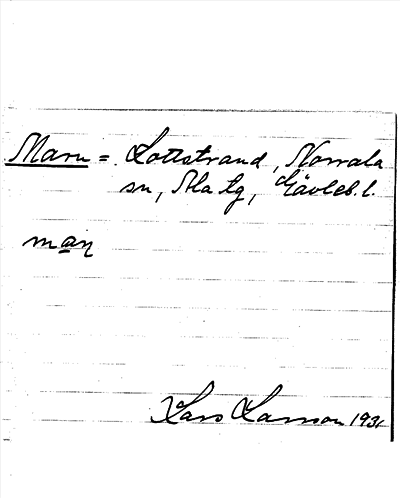 Marn = Lottstrand, Norrala
sn, Ala tg, Gävleb. l.
maɳ
Lars Larsson 1931